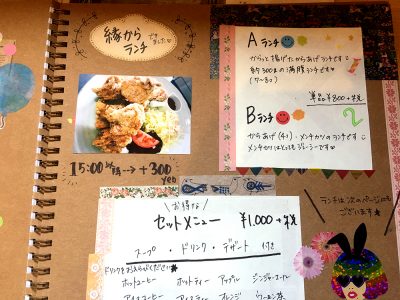 縁から
ランチ
できました
Aランチ
からっと揚げたからあげランチです
約300gの満腹ランチです♡
(7〜8コ)
単品¥800+税
Bランチ
からあげ(4コ)・メンチカツのランチです
メンチカツはとってもジューシーです
15:00以降→+300
yen
お得な
セットメニュー ¥1,000+税
スープ・ドリンク・デザート 付き
ドリンクをお選びください
ホットコーヒー ホットティー アップル ジンジャーエール
アイスコーヒー アイスティー オレンジ ウーロン茶
ランチは次のページにも
ございます